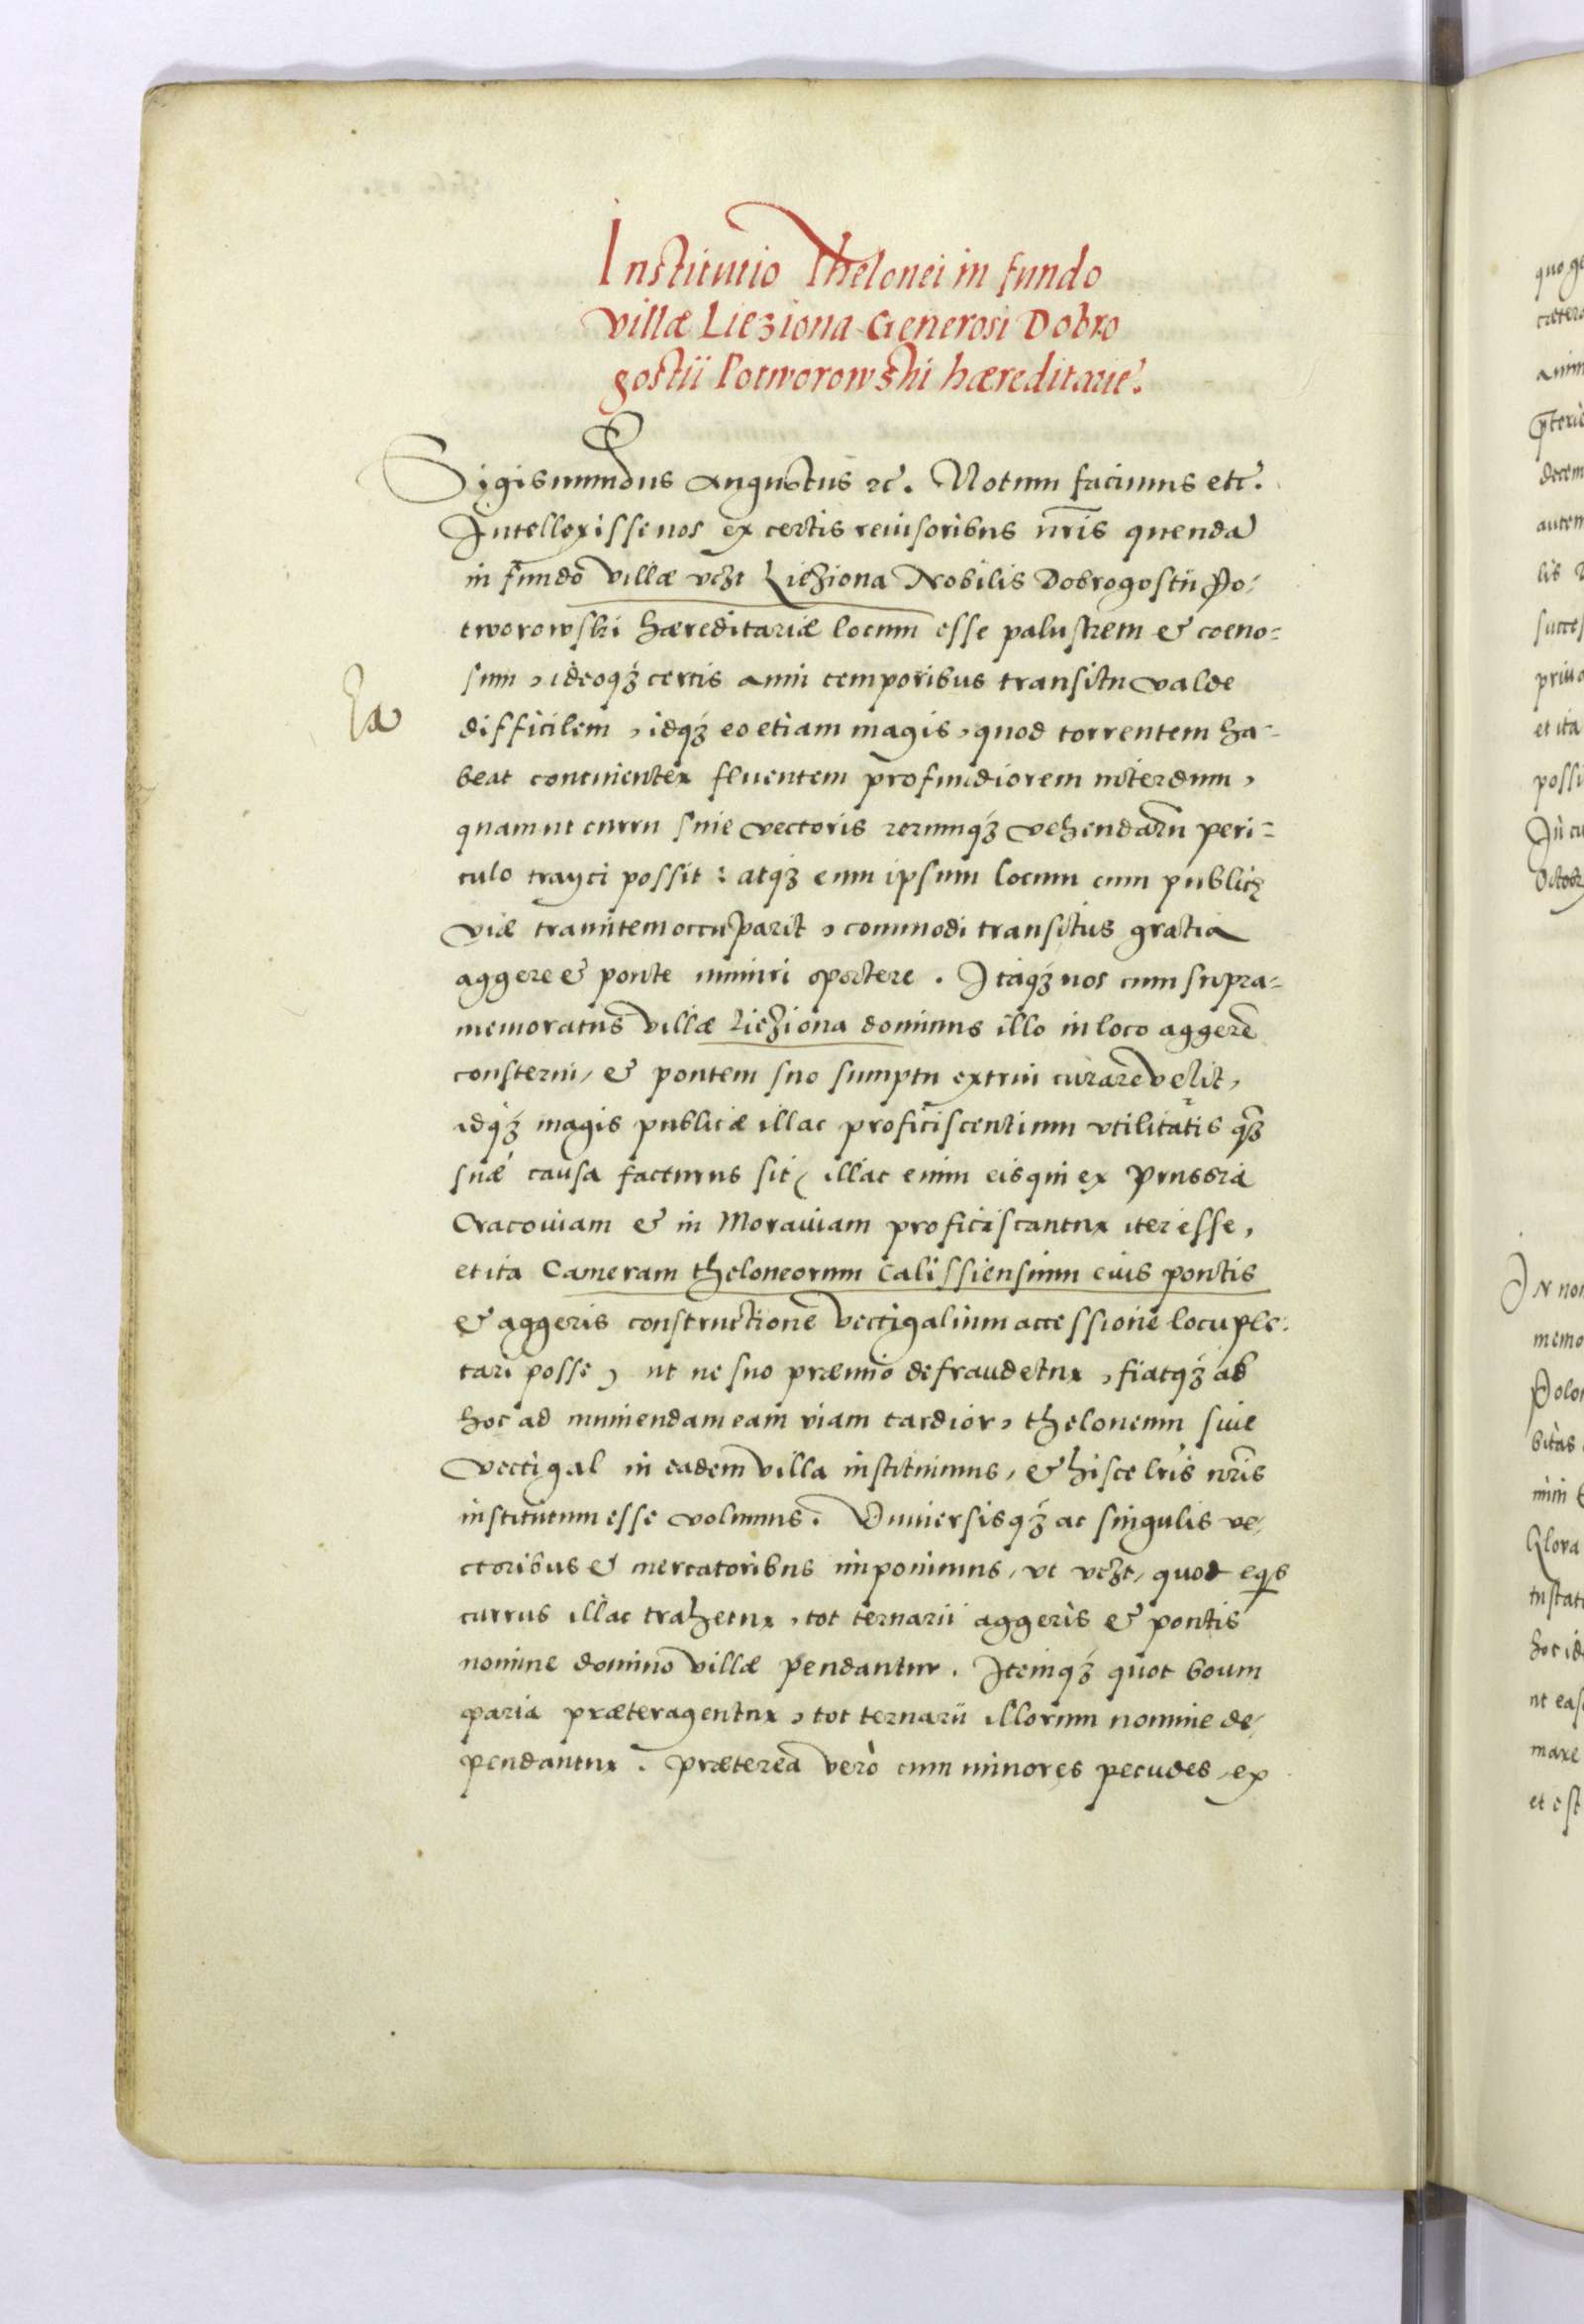 Institutio Thelonei in fundo
villæ Lieziona Generosi Dobro
gostii Potworowski hæreditarie.
Sigismundus Augustus etc. Notum facimus etc.
Intellexisse nos ex certis reuisoribus nr̃is quendã
in fundo villæ vczt Lieziona Nobilis Dobrogostii Po-
tworowski hæreditariæ locum esse palustrem & coeno-
sum, ideoqꝫ certis anni temporibus transitu valde
Ea
difficilem, idqꝫ eo etiam magis, quod torrentem ha-
beat continenter fluentem profundiorem interdum,
quam ut curru siue vectoris rerumqꝫ vehendarũ peri-
culo trayci possit: atqꝫ eum ipsum locum cum publicę
viæ tramitem occuparit, commodi transitus gratia
aggere & ponte muniri oportere. Itaqꝫ nos cum supra-
memoratus villæ Lieziona dominus illo in loco aggerẽ
consterni, & pontem suo sumptu extrui curare velit,
idqꝫ magis publicæ illac proficiscentium vtilitatis qꝫ
suæ causa facturus sit, illac enim eis qui ex Prussia
Cracouiam & in Morauiam proficiscantur iter esse,
et ita Cameram theloneorum Calissiensium eius pontis
& aggeris constructione vectigalium accessione locuple-
tari posse, ut ne suo præmio defraudetur, fiatqꝫ ab
hoc ad muniendam eam viam tardior, theloneum siue
vectigal in eadem villa instituimus, & hisce lr̃is nr̃is
institutum esse volumus. Vniuersisqꝫ ac singulis ve-
ctoribus & mercatoribus imponimus, vt vczt, quot eqs
currus illac trahetur, tot ternarii aggeris & pontis
nomine domino villæ pendantur. Itemqꝫ quot boum
paria præteragentur, tot ternarii illorum nomine de-
pendantur. Præterea vero cum minores pecudes, ex